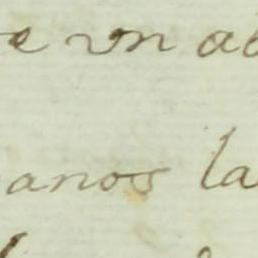 e vn ab
anos la